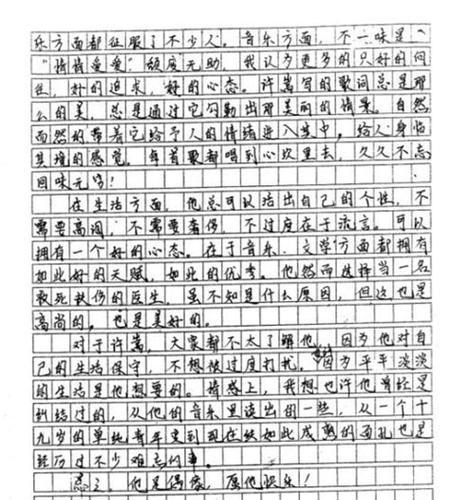 乐方面都征服了不少人。音乐方面，不一味是
"情情爱爱"颓废无助，我认为更多的只好的向
往，好的追求，好的心态。许嵩写的歌词总是那
么的美，总是通过它勾勒出那美丽的情景。自然
而然的带着它给予人的情绪进入其中，给人身临
其境的感觉。每首歌都唱到心坎里去，久久不忘
回味无穷！
在生活方面，他总可以活出自己的个性，不
需要高调，不需要奢侈，不过度在于流言。可以
拥有一个好的心态。在于音乐、文学方面都拥有
如此好的天赋，如此的优秀。他然而选择当一名
救死扶伤的医生，虽不知是什么原因，但这也是
高尚的。也是美好的。
对于许嵩，大家都不太了解他，因为他对自
己的生活保守，不想被过度打扰。因为平平淡淡
的生活是他想要的。情感上，我想也许他曾经是
纠结过的，从他的音乐里读出的一些，从一个十
九岁的单纯青年变到现在终如此成熟的面孔也是
经历过不少难忘的事。
总之，他是偶像，愿他快乐！